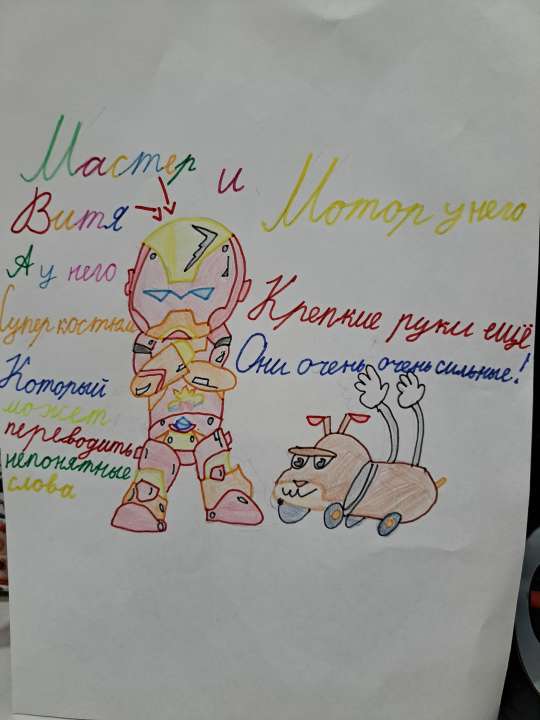 Мастер и Мотор у него
Витя
А у него
Супер костюм
Который
может
переводить
непонятные
слова
Крепкие руки ещё
Они очень, очень сильные!